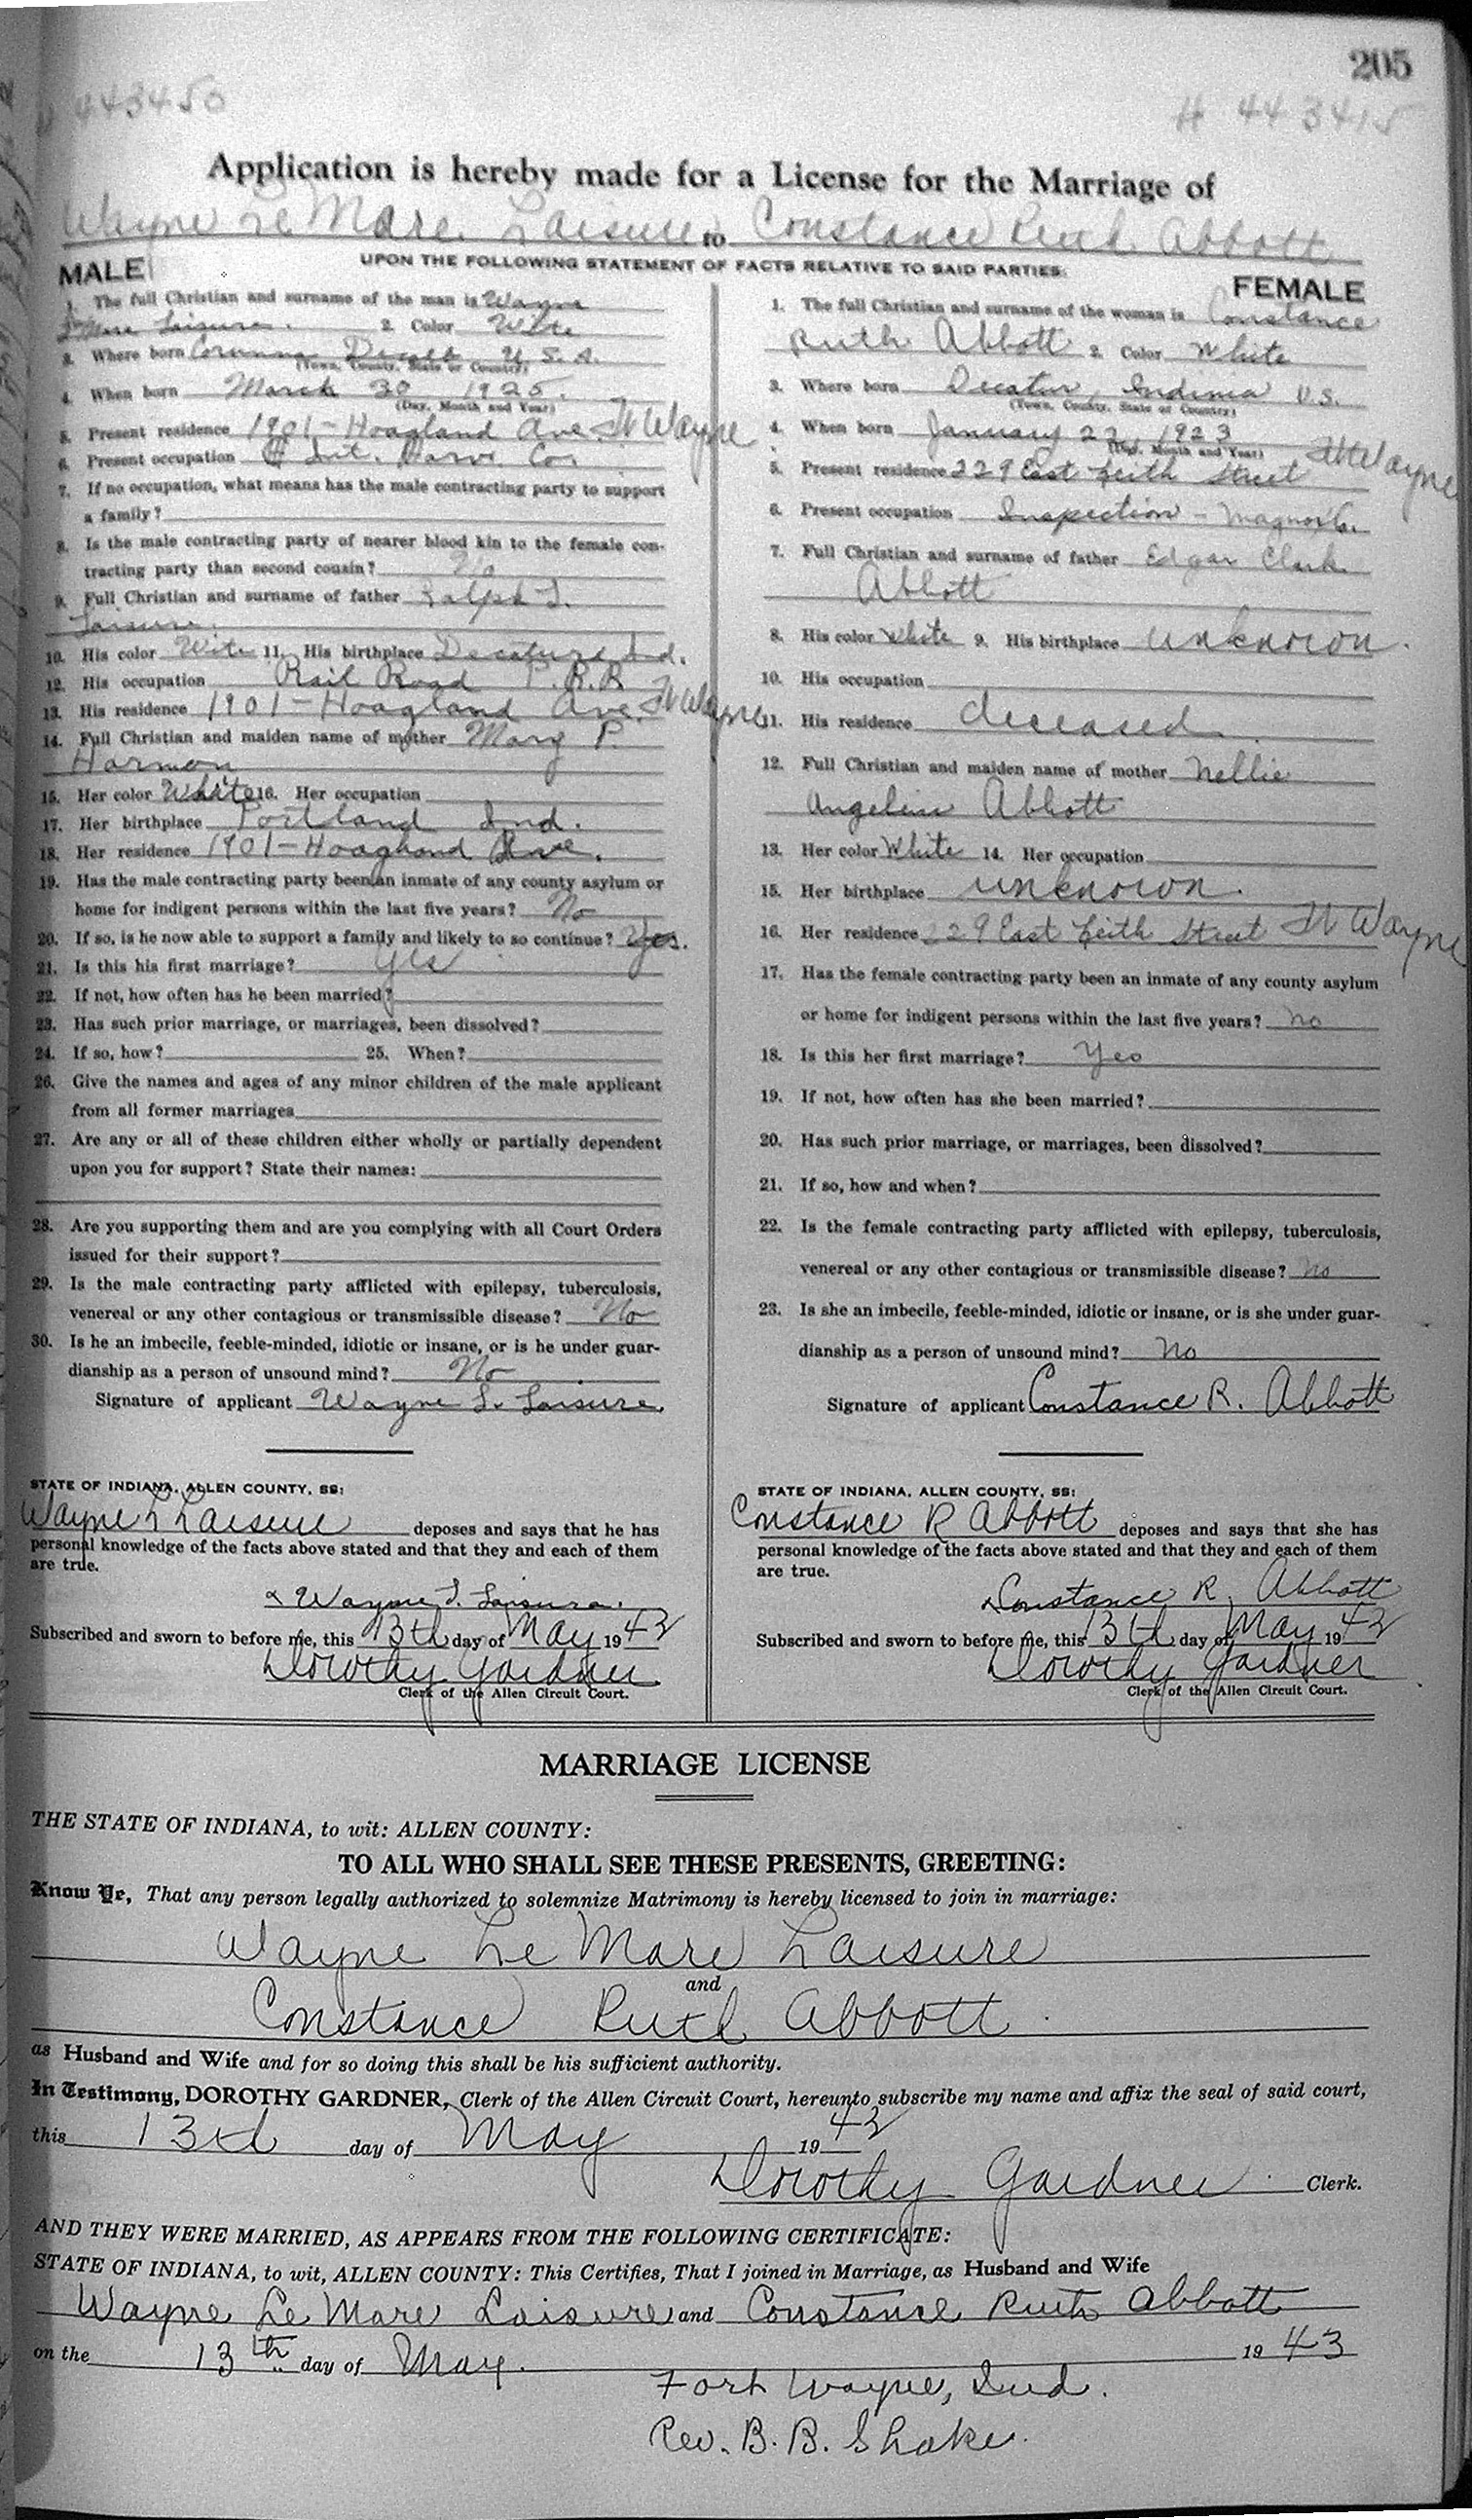 205
443450
H 443415
Application is hereby made for a License for the Marriage of
Wayne Le Mare Laisure to Constance Ruth Abbott
UPON THE FOLLOWING STATEMENT OF FACTS RELATIVE TO SAID PARTIES:
MALE
1. The full Christian and surname of the man is Wayne
Mare Laisure. 2. Color Wite
3. Where born U. S. A.
(Town, County, State or Country)
4. When born March 30 1925.
(Day, Month and Year)
5. Present residence 1901-Hoagland Ave. Ft Wayne
6. Present occupation Int. Harv. Co.
7. If no occupation, what means has the male contracting party to support
a family?
8. Is the male contracting party of nearer blood kin to the female con-
tracting party than second cousin? No
9. Full Christian and surname of father Ralph L.
Laisure.
10. His color Wite 11. His birthplace Decature Ind.
12. His occupation Rail Road P.R.R
13. His residence 1901-Hoagland Ave. Ft Wayne
14. Full Christian and maiden name of mother Mary P.
Harmon
15. Her color White 16. Her occupation
17. Her birthplace Portland Ind.
18. Her residence 1901-Hoagland Ave.
19. Has the male contracting party been an inmate of any county asylum or
home for indigent persons within the last five years? No
20. If so, is he now able to support a family and likely to so continue? Yes.
21. Is this his first marriage? Yes
22. If not, how often has he been married?
23. Has such prior marriage, or marriages, been dissolved?
24. If so, how? 25. When?
26. Give the names and ages of any minor children of the male applicant
from all former marriages
27. Are any or all of these children either wholly or partially dependent
upon you for support? State their names:
28. Are you supporting them and are you complying with all Court Orders
issued for their support?
29. Is the male contracting party afflicted with epilepsy, tuberculosis,
venereal or any other contagious or transmissible disease? No
30. Is he an imbecile, feeble-minded, idiotic or insane, or is he under guar-
dianship as a person of unsound mind? No
Signature of applicant Wayne L. Laisure.
STATE OF INDIANA, ALLEN COUNTY, SS:
Wayne L Laisure deposes and says that he has
personal knowledge of the facts above stated and that they and each of them
are true.
x Wayne L. Laisure.
Subscribed and sworn to before me, this 13th day of May 1943
Dorothy Gardner
Clerk of the Allen Circuit Court.
FEMALE
1. The full Christian and surname of the woman is Constance
Ruth Abbott 2. Color White
3. Where born Decatur, Indiana U.S.
(Town, County, State or Country)
4. When born January 22 1923
(Day, Month and Year)
5. Present residence 229 East Leith Street Ft Wayne
6. Present occupation Inspection - Magnavox Co.
7. Full Christian and surname of father Edgar Clark
Abbott
8. His color White 9. His birthplace unknown.
10. His occupation
11. His residence deceased
12. Full Christian and maiden name of mother Nellie
Angeline Abbott
13. Her color White 14. Her occupation
15. Her birthplace unknown.
16. Her residence 229 East Leith Street Ft Wayne
17. Has the female contracting party been an inmate of any county asylum
or home for indigent persons within the last five years? No
18. Is this her first marriage? Yes
19. If not, how often has she been married?
20. Has such prior marriage, or marriages, been dissolved?
21. If so, how and when?
22. Is the female contracting party afflicted with epilepsy, tuberculosis,
venereal or any other contagious or transmissible disease? No
23. Is she an imbecile, feeble-minded, idiotic or insane, or is she under guar-
dianship as a person of unsound mind? No
Signature of applicant Constance R. Abbott
STATE OF INDIANA, ALLEN COUNTY, SS:
Constance R Abbott deposes and says that she has
personal knowledge of the facts above stated and that they and each of them
are true.
x Constance R. Abbott
Subscribed and sworn to before me, this 13th day of May 1943
Dorothy Gardner
Clerk of the Allen Circuit Court.
MARRIAGE LICENSE
THE STATE OF INDIANA, to wit: ALLEN COUNTY:
TO ALL WHO SHALL SEE THESE PRESENTS, GREETING:
Know Ye, That any person legally authorized to solemnize Matrimony is hereby licensed to join in marriage:
Wayne Le Mare Laisure
and
Constance Ruth Abbott
as Husband and Wife and for so doing this shall be his sufficient authority.
In Testimony, DOROTHY GARDNER, Clerk of the Allen Circuit Court, hereunto subscribe my name and affix the seal of said court,
this 13th day of May 1943
Dorothy Gardner Clerk.
AND THEY WERE MARRIED, AS APPEARS FROM THE FOLLOWING CERTIFICATE:
STATE OF INDIANA, to wit, ALLEN COUNTY: This Certifies, That I joined in Marriage, as Husband and Wife
Wayne Le Mare Laisure and Constance Ruth Abbott
on the 13th day of May. 1943
Fort Wayne, Ind.
Rev. B. B. Shake.